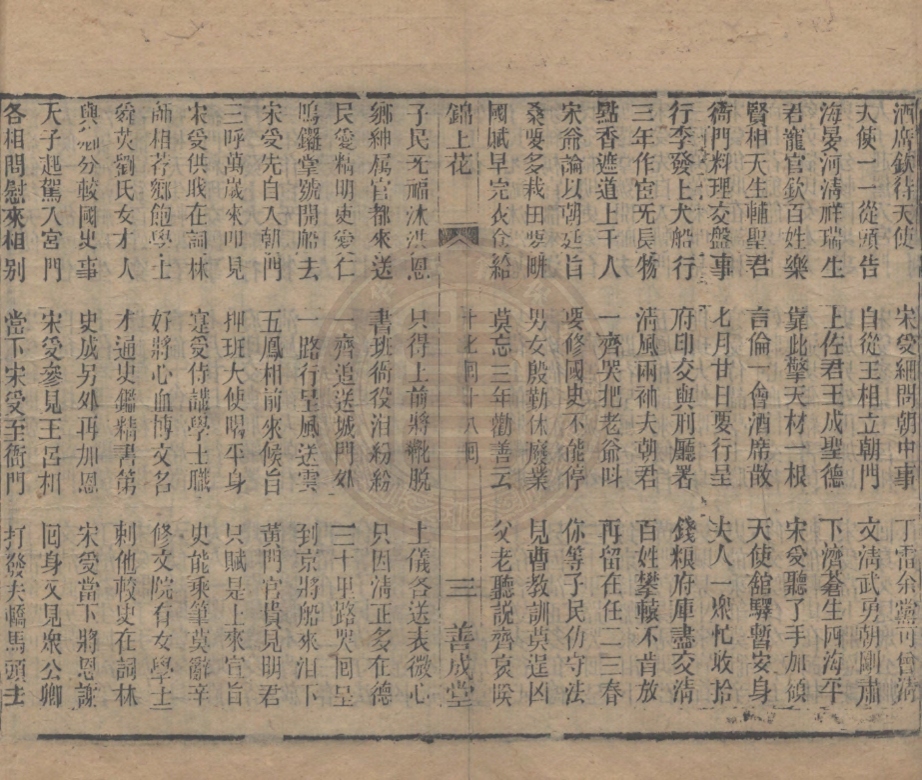 酒席欽待天使　宋受細問朝中事　丁雷余黨可會清
天使一一從頭告　自從王相立朝門　文清武勇朝剛肅
海晏河清祥瑞生　上佐君王成聖德　下濟蒼生四海平
君寵官欽百姓樂　靠此擎天材一根　宋受聽了手加領
賢相天生輔聖君　言倫一會酒席散　天使舘驛暫安身
衙門料理交盤事　七月廿日要行呈　夫人一衆忙收拾
行李發上大船行　府印交與刑廳署　錢粮府庫盡交清
三年作宦无長物　清風兩袖大朝君　百姓攀轅不肯放
點香遮道上千人　一齊哭把老爺呌　再留在任二三春
宋爺論以朝廷旨　要修國史不能停　你等子民仿守法
桑要多栽田要畊　男女殷勤休廢業　見曹教訓莫逞凶
國賦早完衣食給　莫忘三年勸善云　父老聽説齊哀哭
錦上花　十七回十八回　三　善成堂
子民无福沐洪恩　只得上前將靴脫　上儀各送表微心
鄉紳属官都來送　書班衙役泪紛紛　只因清正多在德
民愛精明吏愛仁　一齊追送城門外　三十里路哭回呈
鳴鑼掌號開船去　一路行呈風送雲　到京將船來泊下
宋受先自入朝門　五鳳相前來候旨　黄門官貴見明君
三呼萬歲來叩見　押班大使喝平身　只賦是上來宣旨
宋受供戝在詞林　寔受侍讀學士職　史能乘筆莫辭辛
師相荐鄉飽學士　好將心血博文名　修文院有女學士
舜英劉氏女才人　才通史鑑精書第　刺他較史在詞林
與卿分較國史事　史成另外再加恩　宋受當下將恩謝
天子起駕入宮門　宋受參見王呂相　回身又見衆公卿
各相問慰來相别　當下宋受至衙門　打發夫轎馬頭去